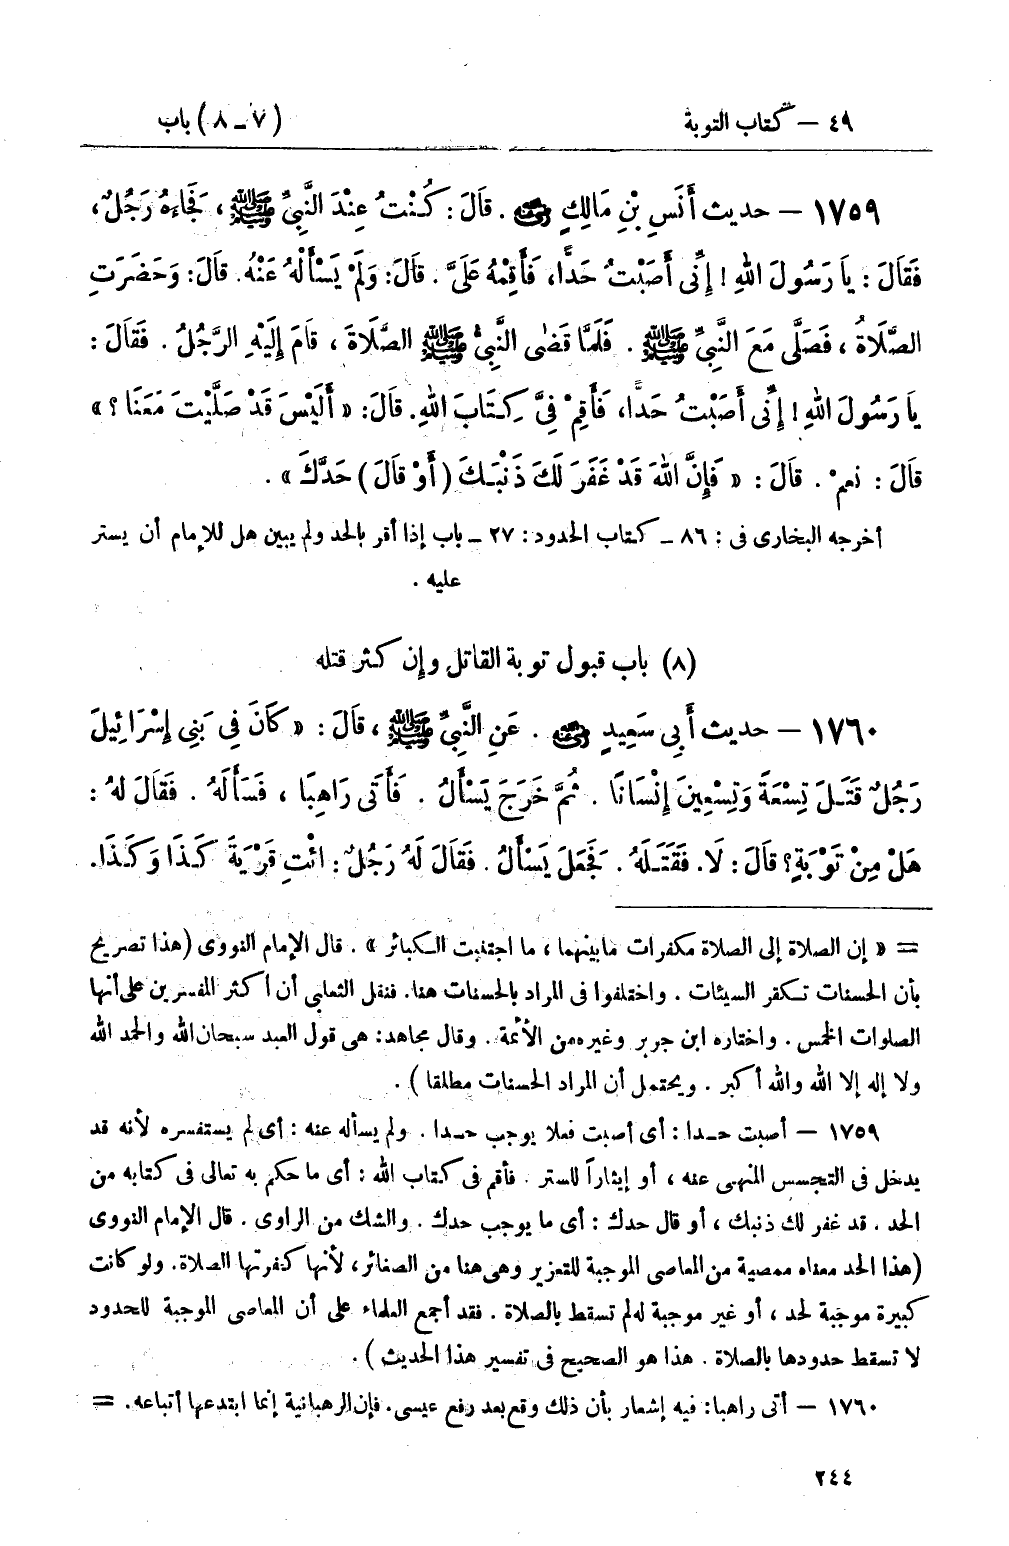 ٤٩ — كتاب التوبة (٧ ـ ٨) باب
١٧٥٩ — حديث أَنَسِ بْنِ مَالِكٍ رضي الله عنه . قَالَ : كُنْتُ عِنْدَ النَّبِيِّ ﷺ ، فَجَاءَهُ رَجُلٌ ،
فَقَالَ : يَا رَسُولَ اللهِ ! إِنِّى أَصَبْتُ حَدًّا، فَأَقِمْهُ عَلَىَّ . قَالَ: وَلَمْ يَسْأَلْهُ عَنْهُ. قَالَ: وَحَضَرَتِ
الصَّلَاةُ ، فَصَلَّى مَعَ النَّبِيِّ ﷺ . فَلَمَّا قَضَى النَّبِيُّ ﷺ الصَّلَاةَ ، قَامَ إِلَيْهِ الرَّجُلُ . فَقَالَ :
يَا رَسُولَ اللهِ ! إِنِّى أَصَبْتُ حَدًّا، فَأَقِمْ فِىَّ كِتَابَ اللهِ. قَالَ: « أَلَيْسَ قَدْ صَلَّيْتَ مَعَنَا ؟ »
قَالَ : نعمْ . قَالَ : « فَإِنَّ اللهَ قَدْ غَفَرَ لَكَ ذَنْبَكَ ( أَوْ قَالَ ) حَدَّكَ » .
أخرجه البخارى فى : ٨٦ ـ كتاب الحدود : ٢٧ ـ باب إذا أقر بالحد ولم يبين هل للإمام أن يستر
عليه .
(٨) باب قبول توبة القاتل وإن كثر قتله
١٧٦٠ — حديث أَبِى سَعِيدٍ رضي الله عنه . عَنِ النَّبِيِّ ﷺ ، قَالَ : « كَانَ فِى بَنِى إِسْرَائِيلَ
رَجُلٌ قَتَلَ تِسْعَةً وَتِسْعِينَ إِنْسَانًا . ثُمَّ خَرَجَ يَسْأَلُ . فَأَتَى رَاهِبًا ، فَسَأَلَهُ . فَقَالَ لَهُ :
هَلْ مِنْ تَوْبَةٍ؟ قَالَ : لَا. فَقَتَلَهُ . فَجَعَلَ يَسْأَلُ . فَقَالَ لَهُ رَجُلٌ : ائْتِ قَرْيَةَ كَذَا وَكَذَا.
= « إن الصلاة إلى الصلاة مكفرات مابينهما ، ما اجتنبت الكبائر » . قال الإمام النووى (هذا تصريح
بأن الحسنات تكفر السيئات . واختلفوا فى المراد بالحسنات هنا. فنقل الثعلبى أن أكثر المفسرين على أنها
الصلوات الخمس . واختاره ابن جرير وغيره من الأئمة . وقال مجاهد: هى قول العبد سبحان الله والحمد لله
ولا إله إلا الله والله أكبر . ويحتمل أن المراد الحسنات مطلقا ) .
١٧٥٩ — أصبت حدا : أى أصبت فعلا يوجب حدا . ولم يسأله عنه : أى لم يستفسره لأنه قد
يدخل فى التجسس المنهى عنه ، أو إيثاراً للستر . فأقم فىّ كتاب الله : أى ما حكم به تعالى فى كتابه من
الحد . قد غفر لك ذنبك ، أو قال حدك : أى ما يوجب حدك . والشك من الراوى . قال الإمام النووى
(هذا الحد معناه معصية من المعاصى الموجبة للتعزير وهى هنا من الصغائر، لأنها كفرتها الصلاة. ولو كانت
كبيرة موجبة لحد ، أو غير موجبة له لم تسقط بالصلاة . فقد أجمع العلماء على أن المعاصى الموجبة للحدود
لا تسقط حدودها بالصلاة . هذا هو الصحيح فى تفسير هذا الحديث ) .
١٧٦٠ — أتى راهبا: فيه إشعار بأن ذلك وقع بعد رفع عيسى. فإن الرهبانية إنما ابتدعها أتباعه. =
٢٤٤